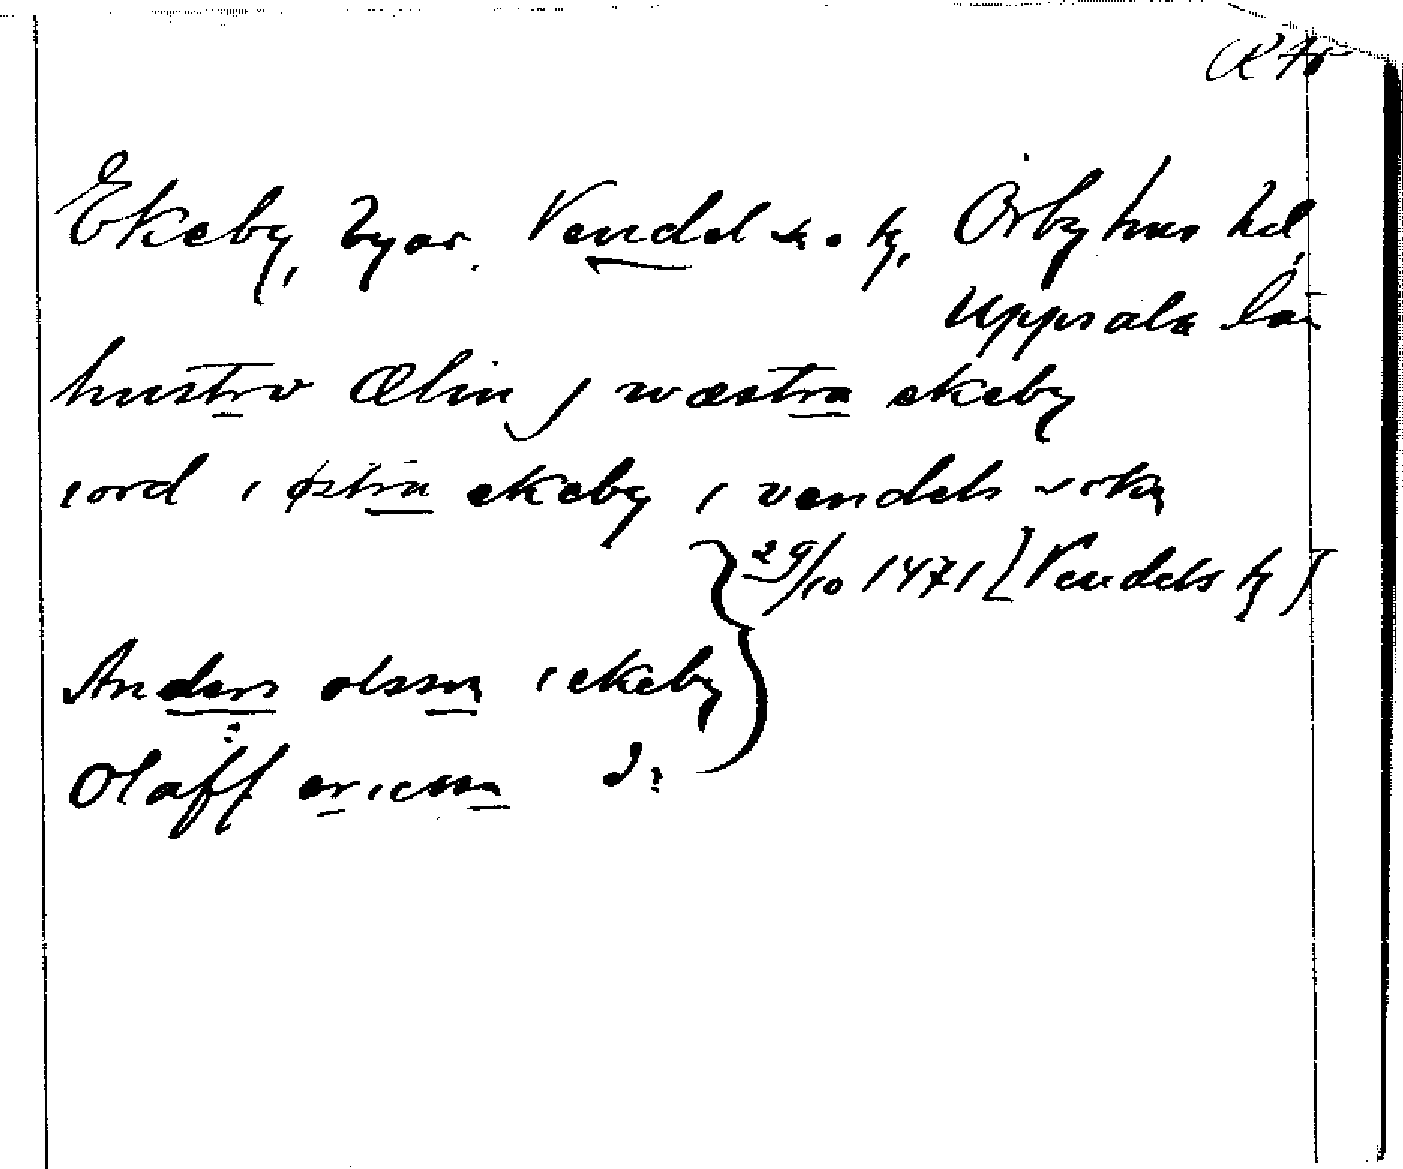 Ekeby, byar. Vendels k., Örbyhus hd,
Uppsala län
hustrv Ælin j wæstra ekeby
iord i østra ekeby i vendels sokn
29/10 1471 [Vendels k]
Anders olsson i ekeby
Olaff ericsson d: